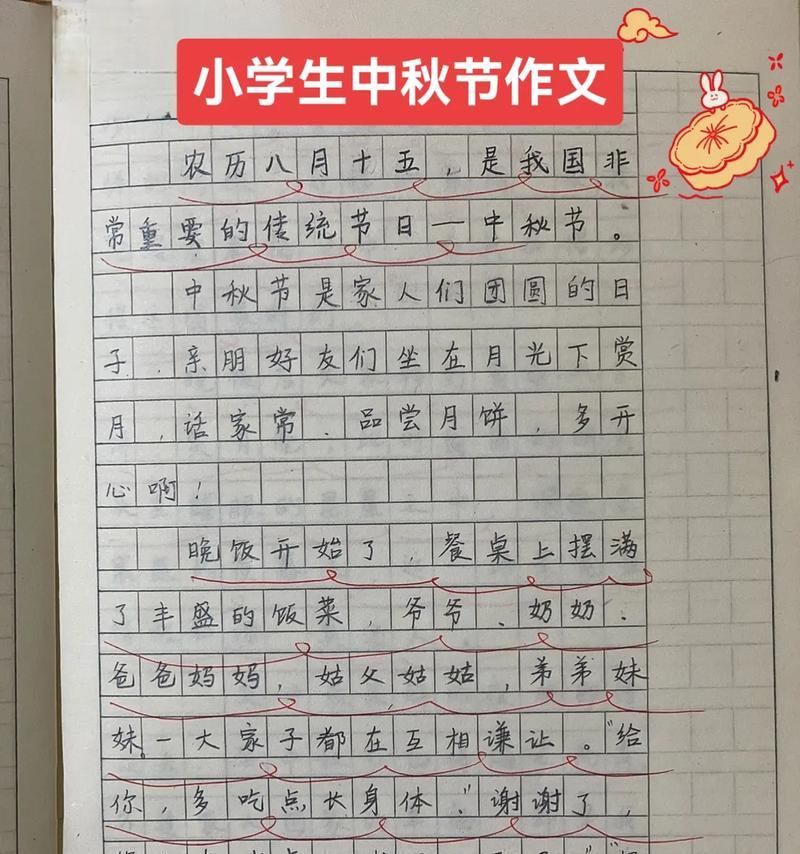 小学生中秋节作文
农历八月十五，是我国非
常重要的传统节日一中秋节。
中秋节是家人们团圆的日
子，亲朋好友们坐在月光下赏
月，话家常、品尝月饼，多开
心啊！
晚饭开始了，餐桌上摆满
了丰盛的饭菜，爷爷、奶奶、
爸爸妈妈，姑父姑姑，弟弟妹
妹。一大家子都在互相谦让。“给
你，多吃点长身体。”谢谢了，